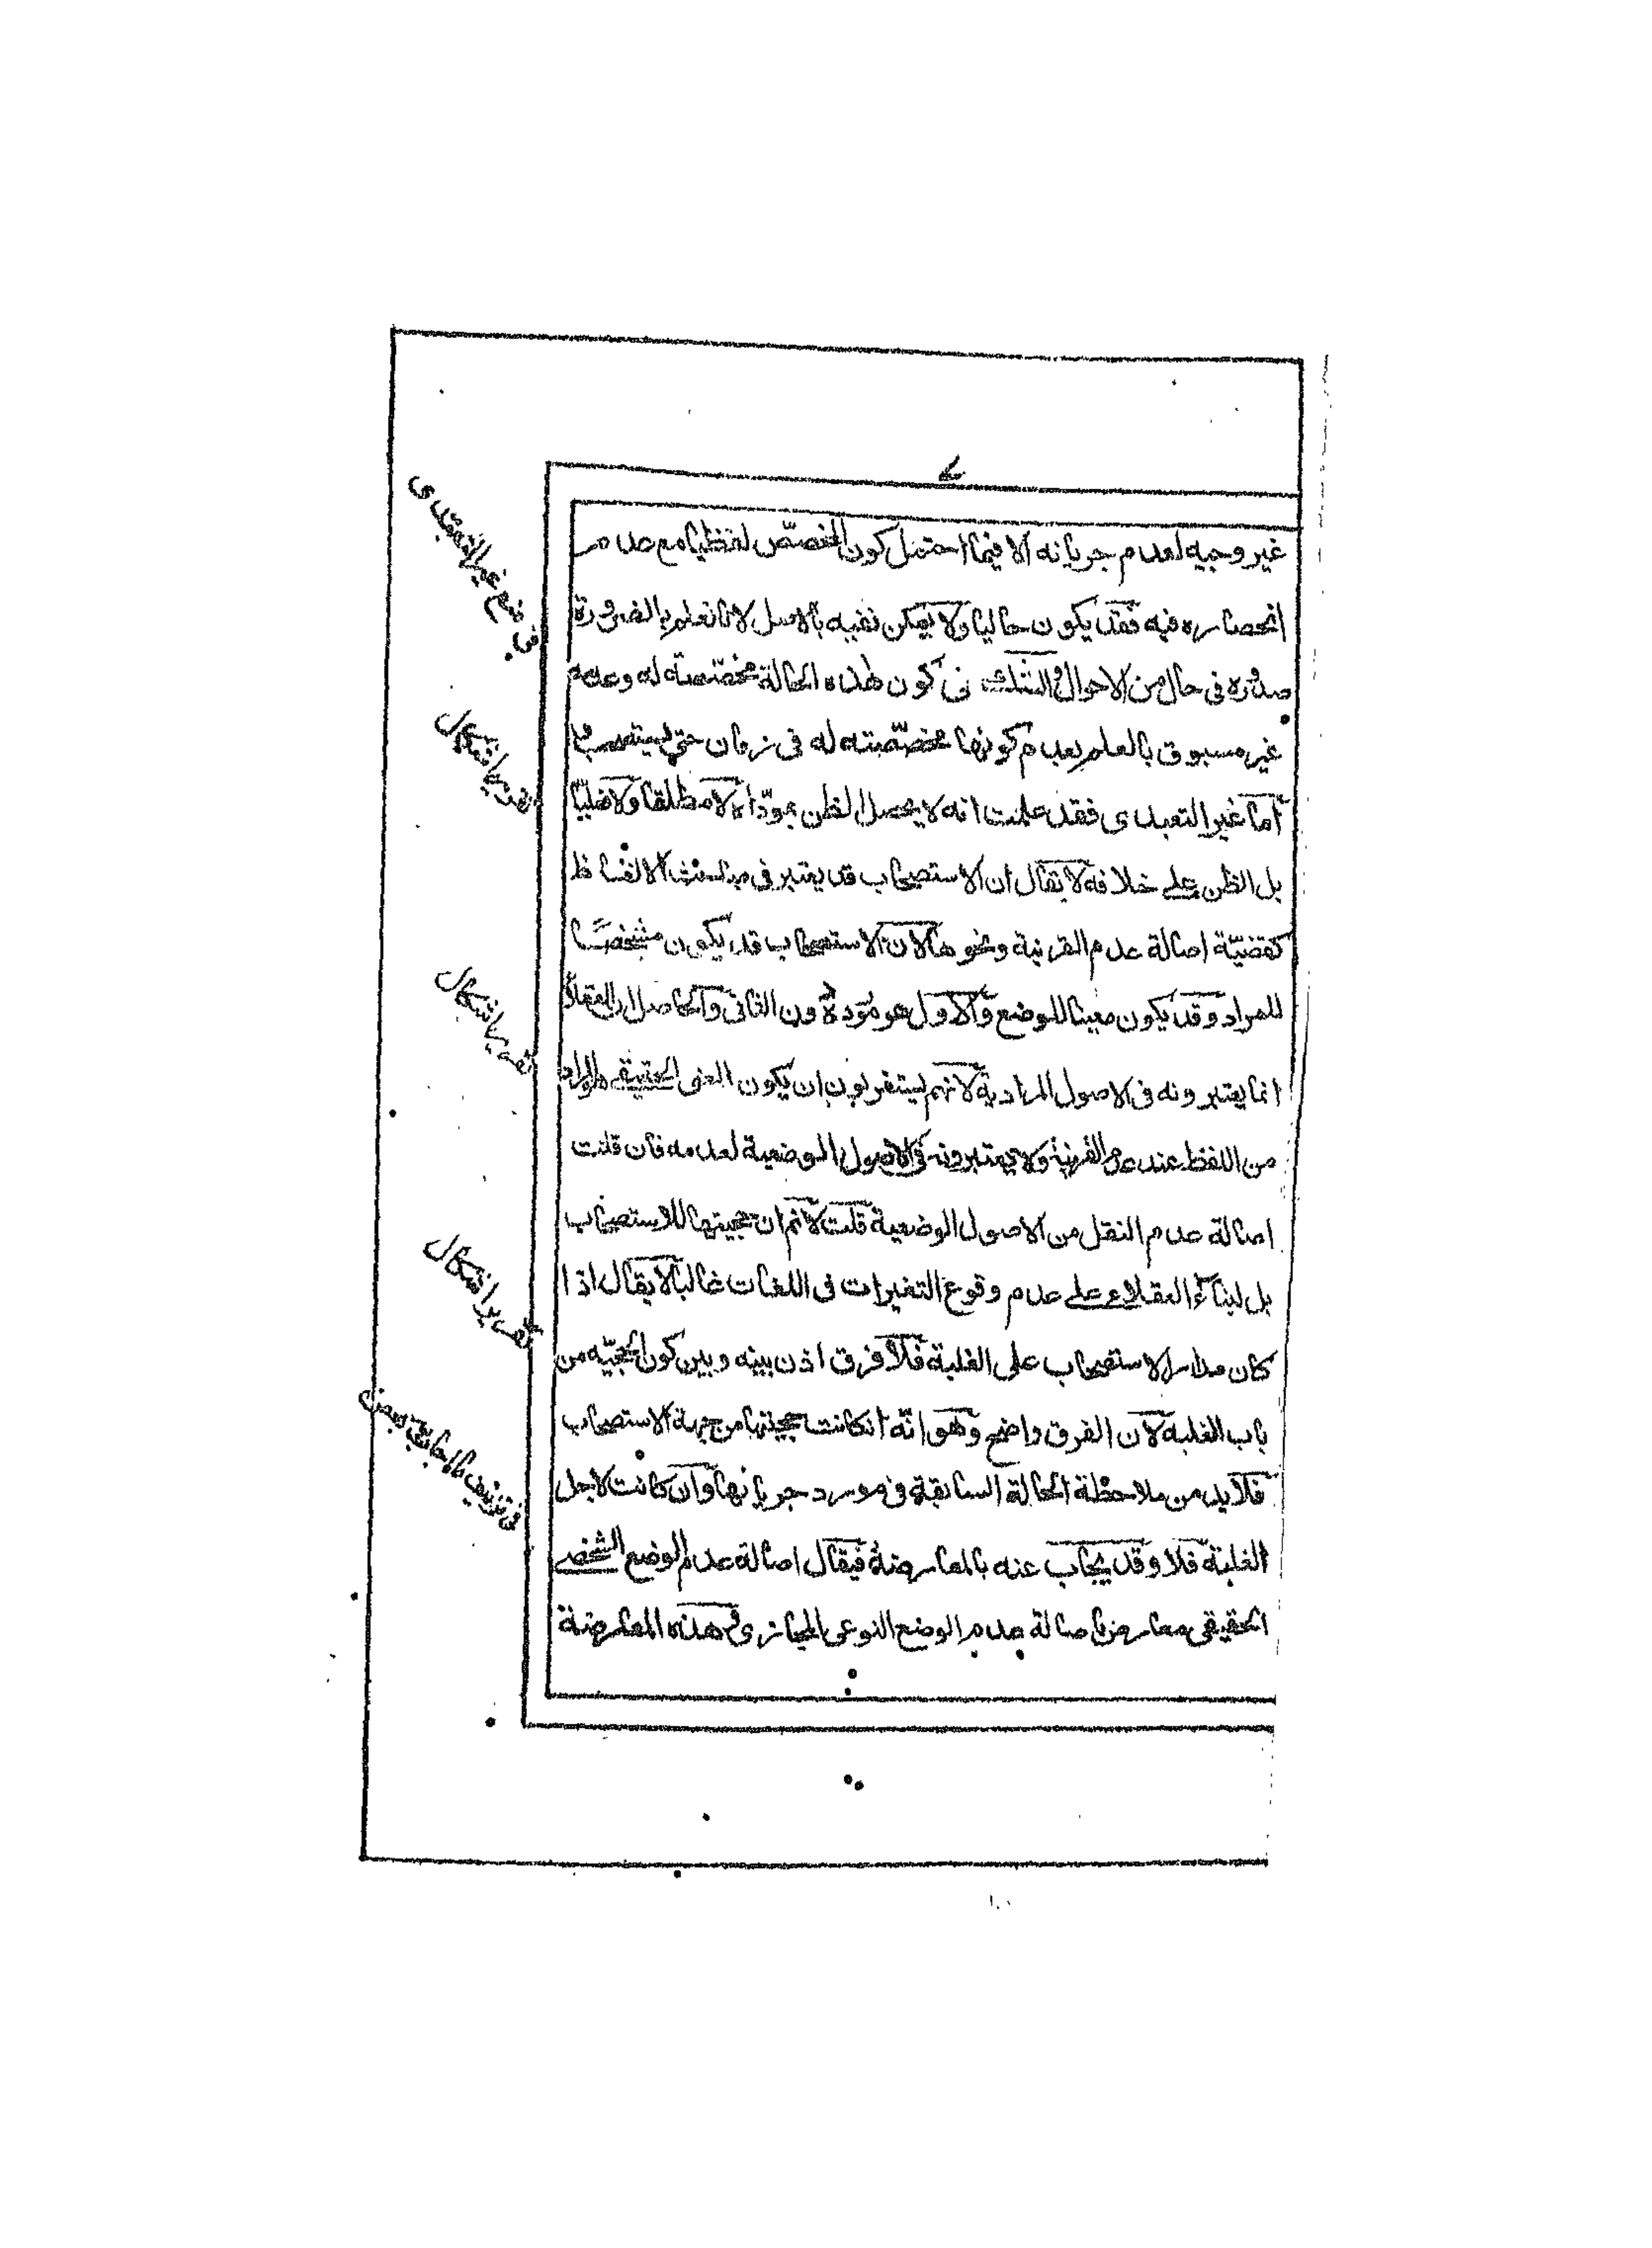 غير وجيه لعدم جريانه الا فيما احتمل كون المخصّص لفظيا مع عدم
انحصاره فيه فقد يكون حاليا ولا يمكن نفيه بالاصل لانا نعلم بالضرورة
صدوره فى حال من الاحوال والشك فى كون هذه الحالة مخصّصة له وعدمه
غير مسبوق بالعلم بعدم كونها مخصّصته له فى زمان حتى يستصحب
اما غير التعبدى فقد علمت انه لا يحصل الظن بمودّاه لا مطلقا ولا فعليّا
بل الظن على خلافه لا يقال ان الاستصحاب قد يعتبر فى مباحث الالفاظ
كقضيّة اصالة عدم القرنية ونحوها لان الاستصحاب قد يكون مشخصا
للمراد وقد يكون معينا للوضع والاول هو مودة دون الثانى والحاصل ان العقلاء
انما يعتبرونه فى الاصول المرادية لانهم يستقربون ان يكون المعنى الحقيقى هو المراد
من اللفظ عند عدم القرنية ولا يعتبرونه فى الاصول الوضعية لعدمه فان قلت
اصالة عدم النقل من الاصول الوضعية قلت لانم ان حجيتها للاستصحاب
بل لبناء العقلاء على عدم وقوع التغيرات فى اللغات غالبا لا يقال اذا
كان مدار الاستصحاب على الغلبة فلا فرق اذن بينه وبين كون الحجيّه من
باب الغلبه لان الفرق واضح وهو انّه انكانت حجيتها من جهة الاستصحاب
فلابد من ملاحظة الحالة السابقة فى مورد جريانها وان كانت لاجل
الغلبة فلا وقد يجاب عنه بالمعارضة فيقال اصالة عدم الوضع الشخصى
الحقيقى معارض باصالة عدم الوضع النوعى المجازى وفى هذه المعارضة
فى منع غير التعبدى
تقرير اشكال
تقرير اشكال
تقرير اشكال